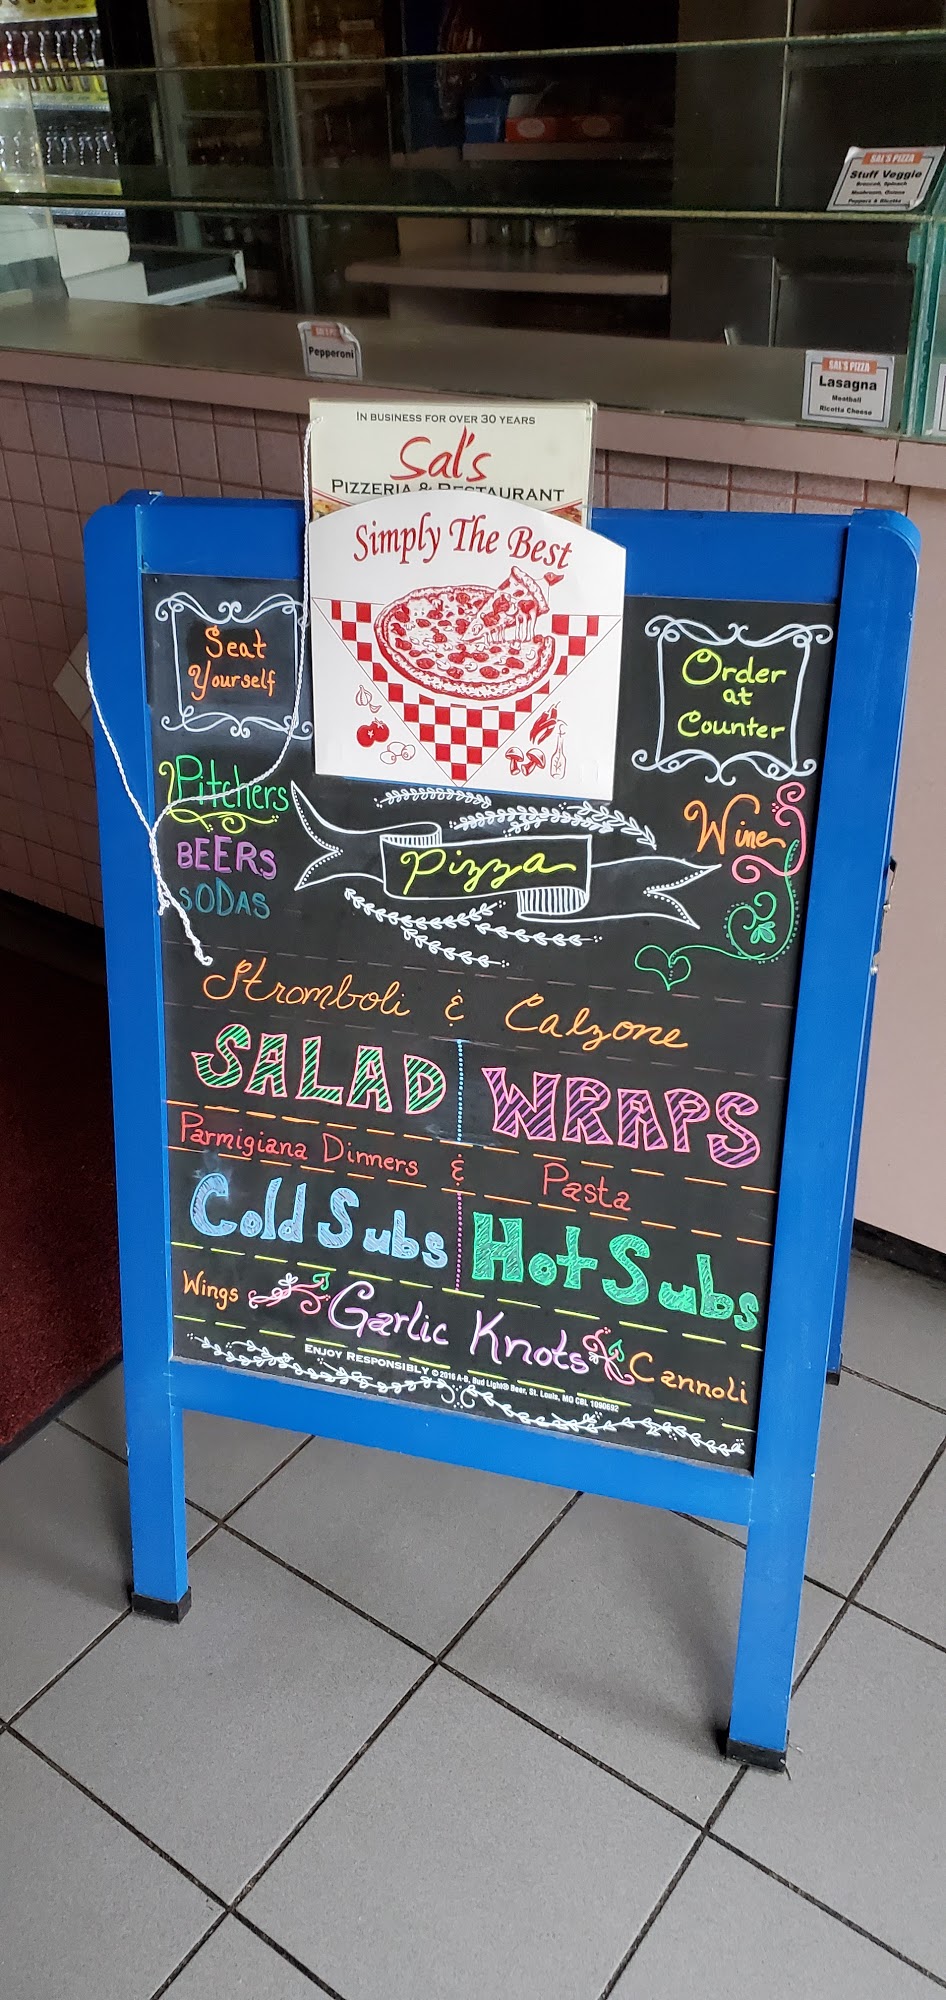 SAL'S PIZZA
Stuff Veggie
Broccoli, Spinach
Mushroom, Onions
Peppers & Ricotta
Pepperoni
SAL'S PIZZA
Lasagna
Meatball
Ricotta Cheese
IN BUSINESS FOR OVER 30 YEARS
Sal's
PIZZERIA & RESTAURANT
Simply The Best
Seat
Yourself
Order
at
Counter
Pitchers
BEERS
SODAS
Pizza
Wine
Stromboli & Calzone
SALAD WRAPS
Parmigiana Dinners & Pasta
Cold Subs Hot Subs
Wings Garlic Knots Cannoli
ENJOY RESPONSIBLY © 2016 A-B, Bud Light® Beer, St. Louis, MO CBL 1090692